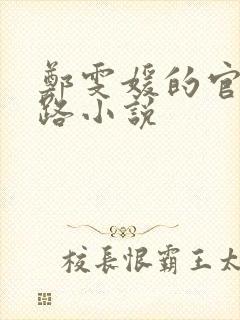 鄭雯媛的官
路小説
校長恨霸王太